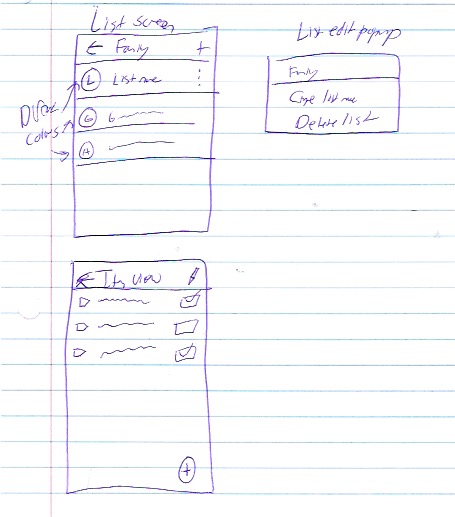 List screen
← Family +
L List name ⋮
G G
A
Different
colors
List edit popup
Family
Change list name
Delete list
← Item view
+